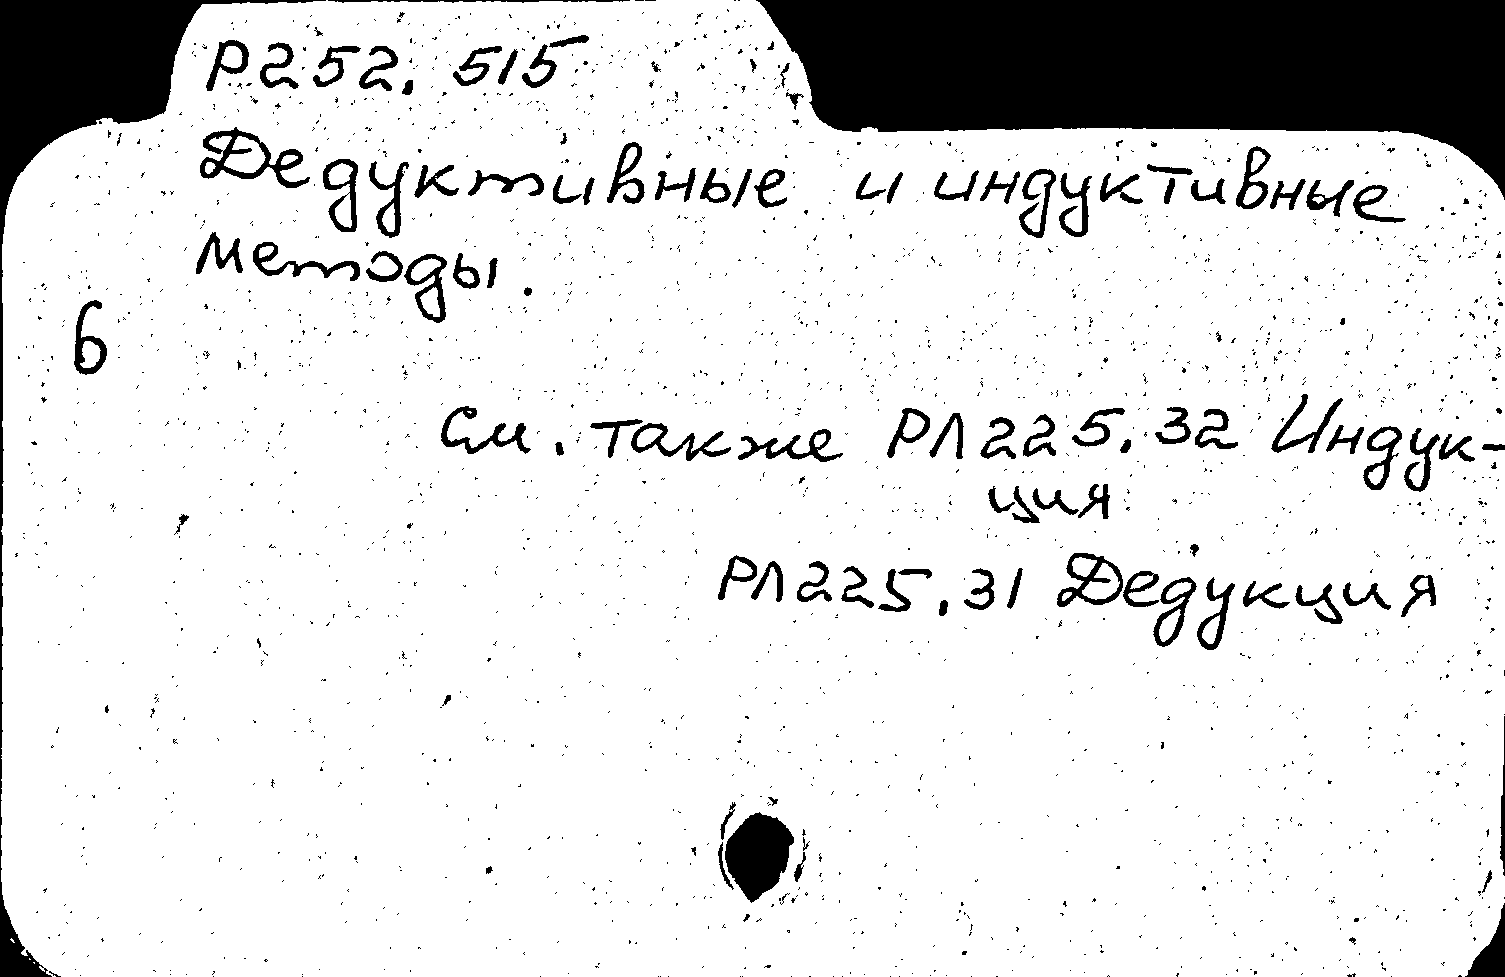 Р252.515
Дедуктивные и индуктивные
методы.
6
См. также РЛ225.32 Индук-
ция
РЛ225.31 Дедукция